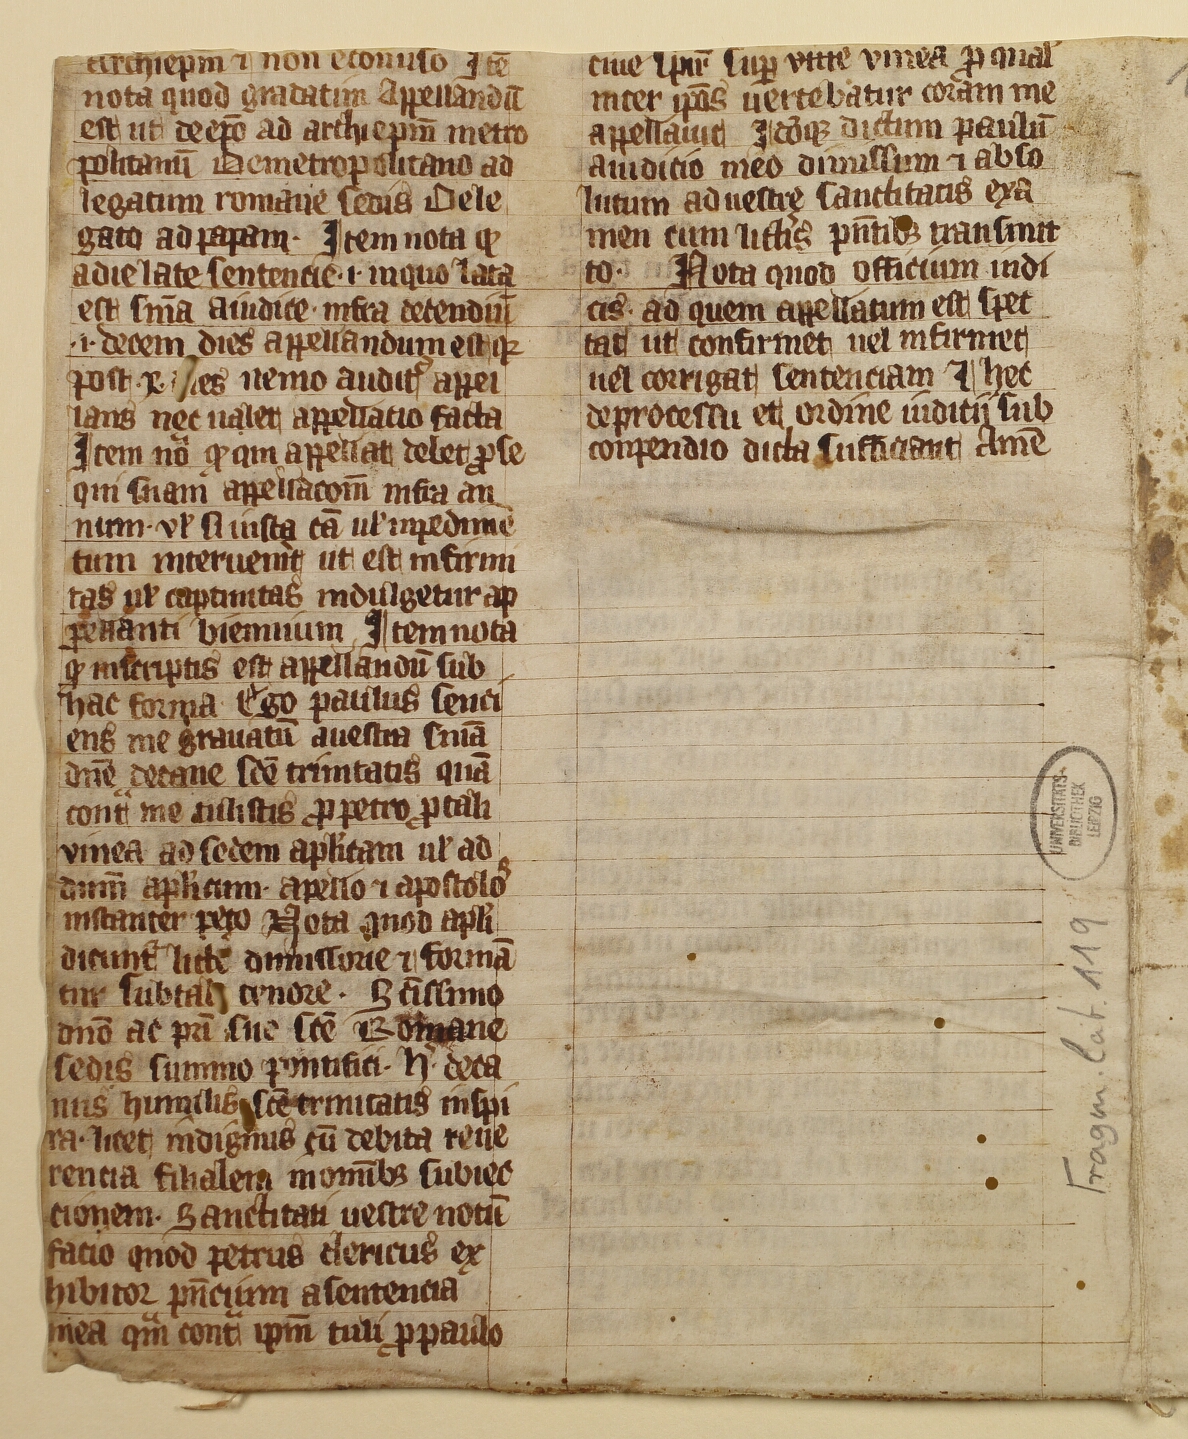 archiepm̄ ⁊ non econuͥso Itē
nota quod gradatim Appellandū
est ut de ep̄o ad archiepm̄ metro
politanū De metropolitano ad
legatum romane sedis De le
gato ad papam· Item nota ꝙ
a die late sentencie·i· in quo lata
est sn̄ia a iudice· infra decendiū
·i· decem dies appellandum est qꝛ
post·x· es nemo auditᷣ appel
lans nec ualet appellacio facta
Item no ꝙ qui appellat debet ꝓse
qui suam appellacōm̄ infra an
num· ul̕ si iusta cā ul̕ inpedimē
tum interuenit ut est infirmi
tas ul̕ captiuitas indulgetur ap
pellanti biennium Item nota
ꝙ in scriptis est appellandū sub
hac forma Ego paulus senci
ens me grauatū a uestra sn̄iā
dn̄e decane scē trinitatis quā
contᵃ me tulistis ꝓ petro ꝓ tali
vinea ad sedem apl̕icam ul̕ ad
dnm̄ apl̕icum· apello ⁊ apostolos
instanter peto Nota quod apl̕i
dicunt᷑ litte dimissorie ⁊ formā
tur sub tali tenore· Sc̄issimo
dn̄o ac pr̄i sue scē Romane
sedis summo pontifici· H· deca
nus humilis scē trinitatis in spi
ra· licet indignus cū debita reue
rencia filialem in omībꝫ subiec
cionem· Sanctitati uestre notū
facio quod petrus clericus ex
hibitor pn̄cium a sentencia
mea qᵃm contᵃ ipm̄ tuli ꝓ paulo
ciue spir̄ suꝑ vnie vinea ꝓ qua
inter ip̄os uertebatur coram me
appellauit Icōqꝫ dictum paulū
a iudicio meo dimissum ⁊ abso
lutum ad uestrę sanctitatis exa
men cum litt̄is pn̄tibꝫ transmit
to· Nota quod officium iudi
cis· ad quem appellatum est spec
tat ut confirmet uel infirmet
uel corrigat sentenciam ⁊ hec
de processu et ordine iudicij sub
conpendio dicta sufficiant Amē
UNIVERSITÄTS-
BIBLIOTHEK
LEIPZIG
Fragm. lat. 119